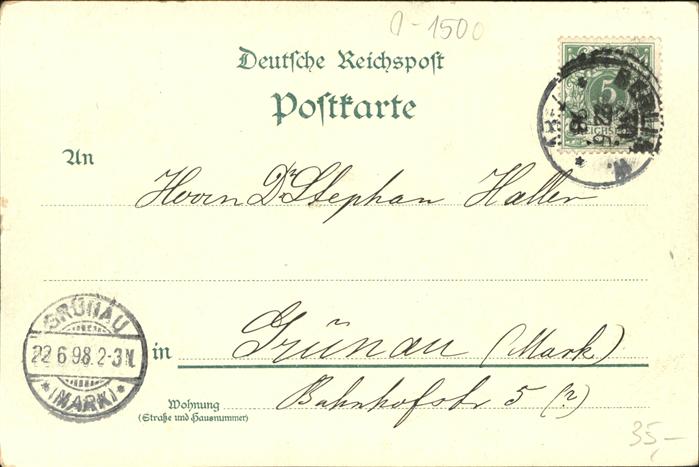 a-1500
Deutsche Reichspost
Postkarte
5
BERLIN
An
Herrn Dr. Stephan Haller
GRÜNAU
22.6.98.2-3N.
*(MARK)*
in Grünau (Mark)
Wohnung
(Straße und Hausnummer)
Bahnhofstr 5 (?)
35,-